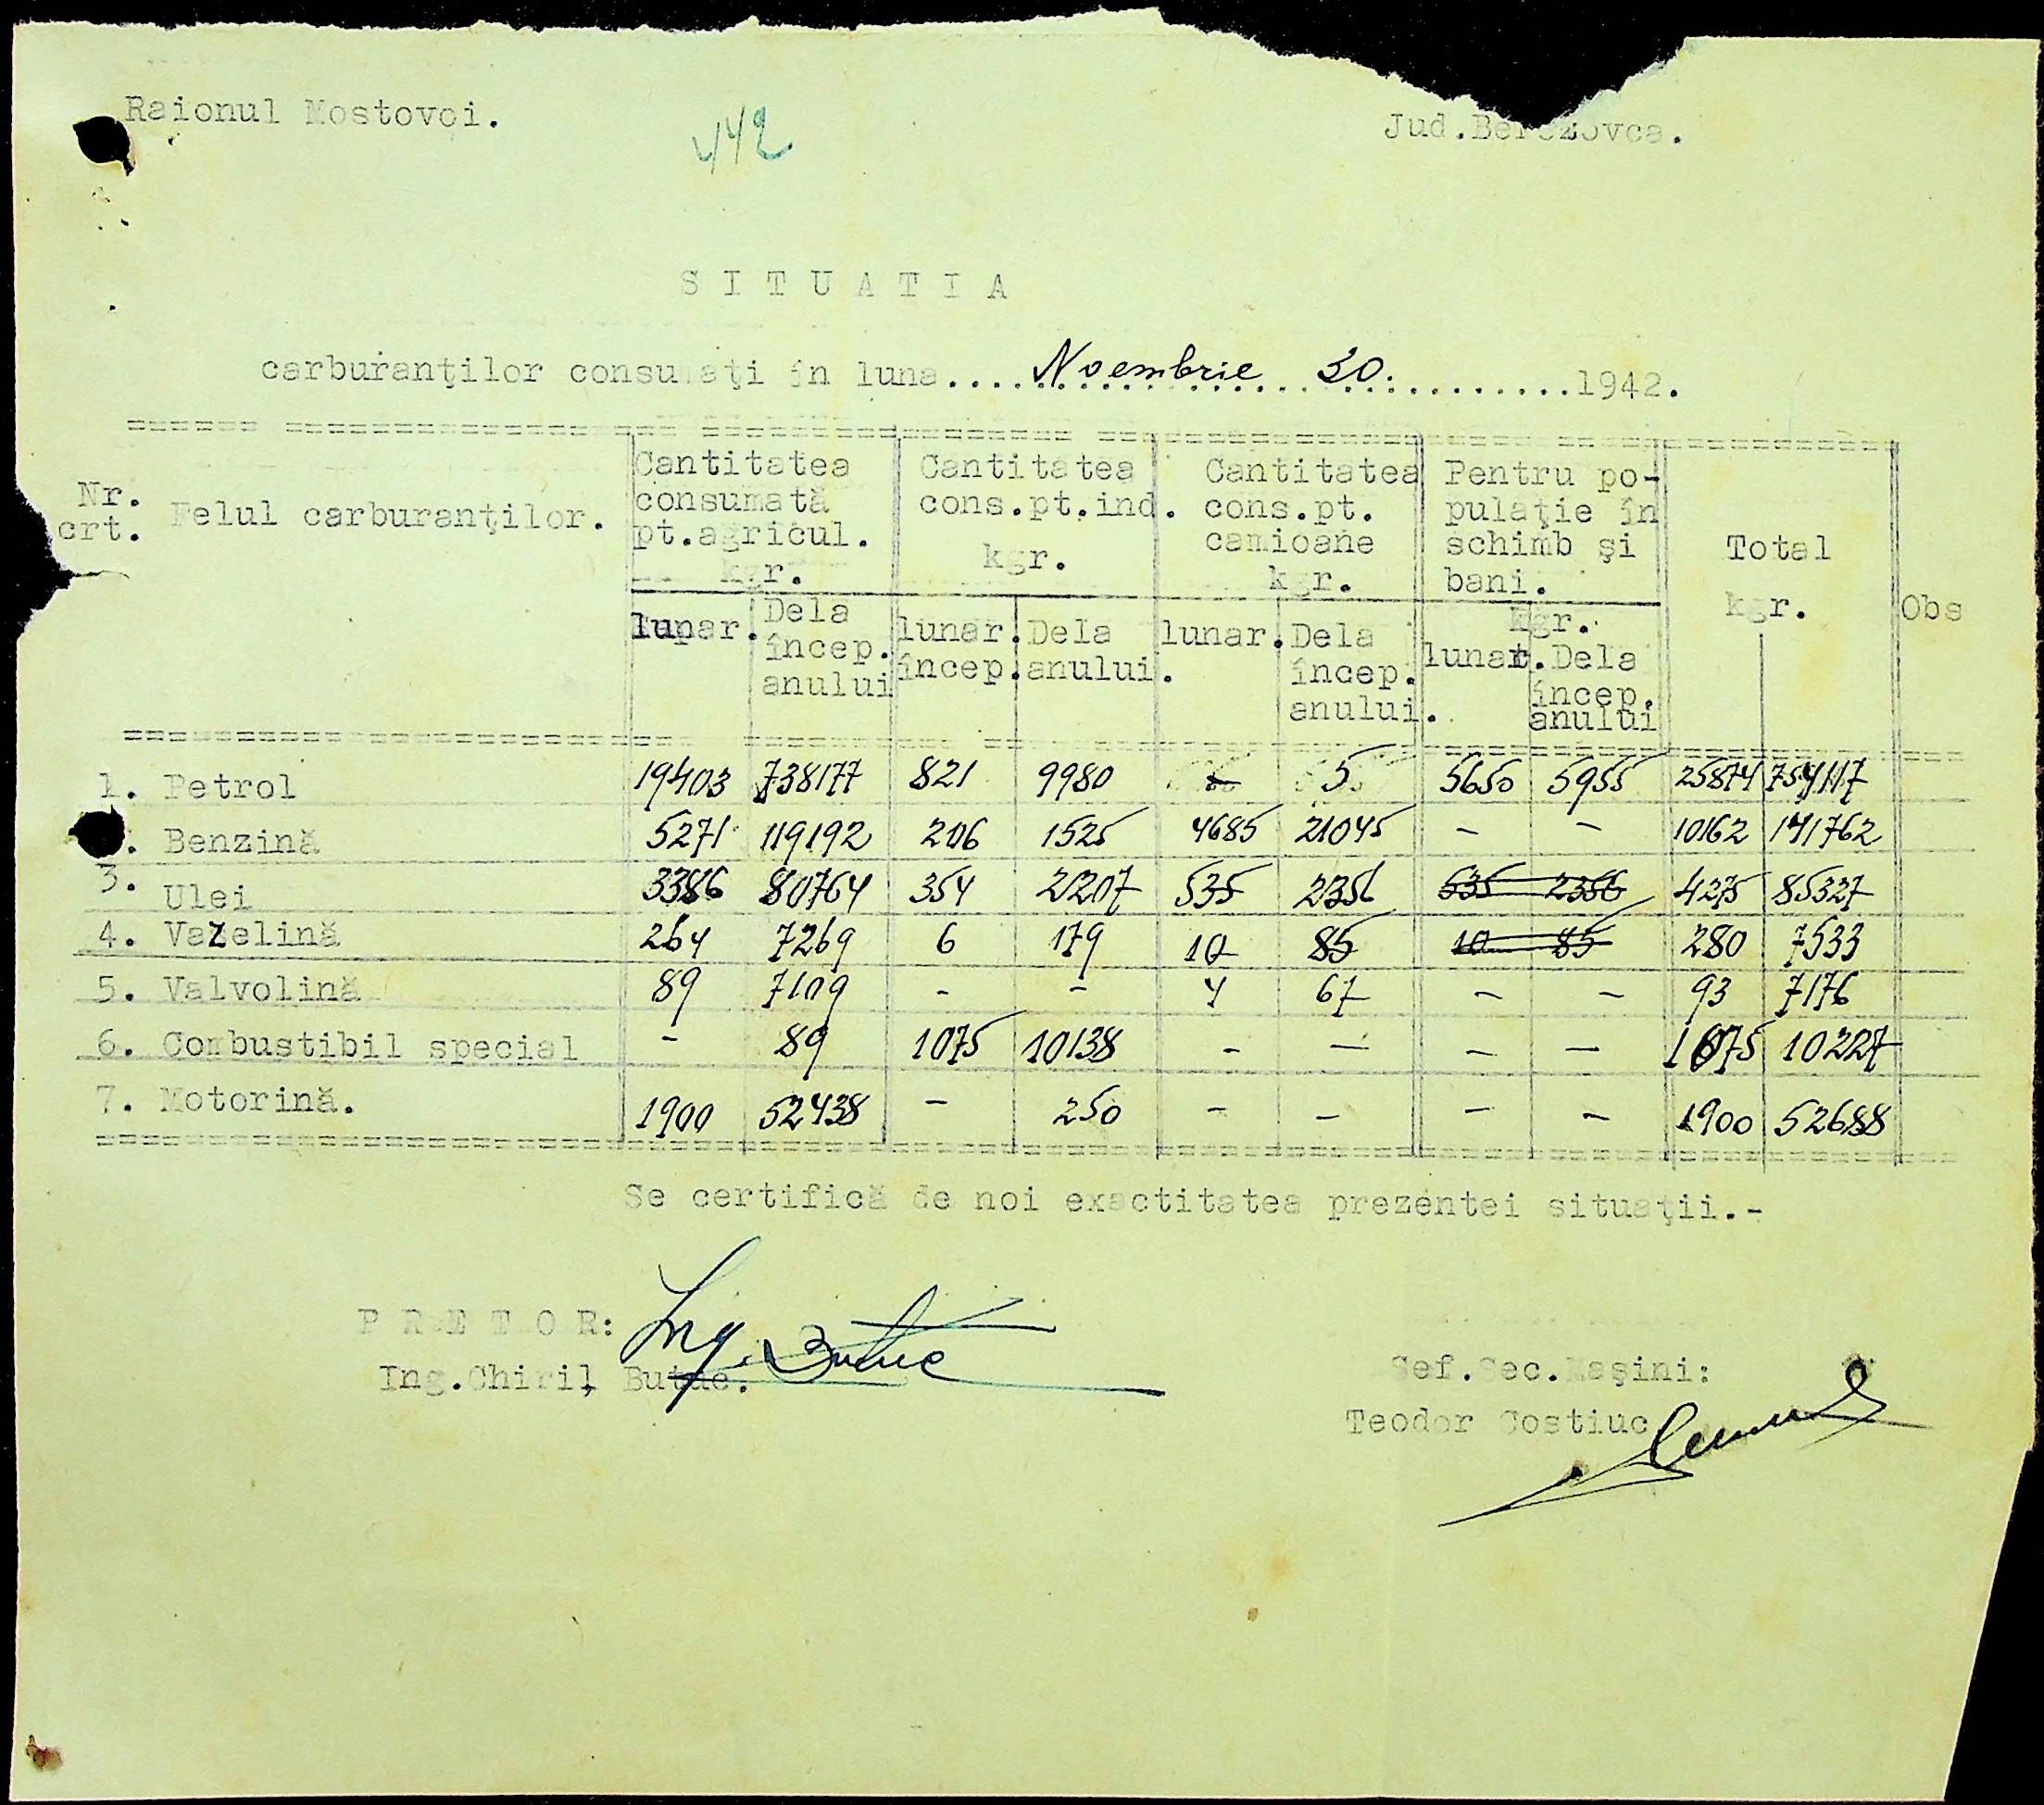 Raionul Mostovoi.
442
Jud.Berezovca.
S I T U A T I A
carburanţilor consumaţi în luna.... Noembrie 30. ..........1942.
Nr. crt. | Felul carburanţilor. | Cantitatea consumată pt.agricul. kgr. | Cantitatea cons.pt.ind. kgr. | Cantitatea cons.pt. camioane kgr. | Pentru po- pulaţie în schimb şi bani. kgr. | Total kgr. | Obs
lunar. | Dela încep. anului | lunar. încep. | Dela anului. | lunar. | Dela încep. anului. | lunar. | Dela încep. anului
1. Petrol 19403 738177 821 9980 - 5 5650 5955 25874 754117
. Benzină 5271 119192 206 1525 4685 21045 - - 10162 141762
3. Ulei 3386 80764 354 2207 535 2356 535 2356 4275 85327
4. Vazelină 264 7269 6 179 10 85 10 85 280 7533
5. Valvolină 89 7109 - - 4 67 - - 93 7176
6. Combustibil special - 89 1075 10138 - - - - 1075 10227
7. Motorină. 1900 52438 - 250 - - - - 1900 52688
Se certifică de noi exactitatea prezentei situaţii.-
P R E T O R:
Ing. Butuc
Ing.Chiril Butuc.
Sef.Sec.Maşini:
Teodor Costiuc